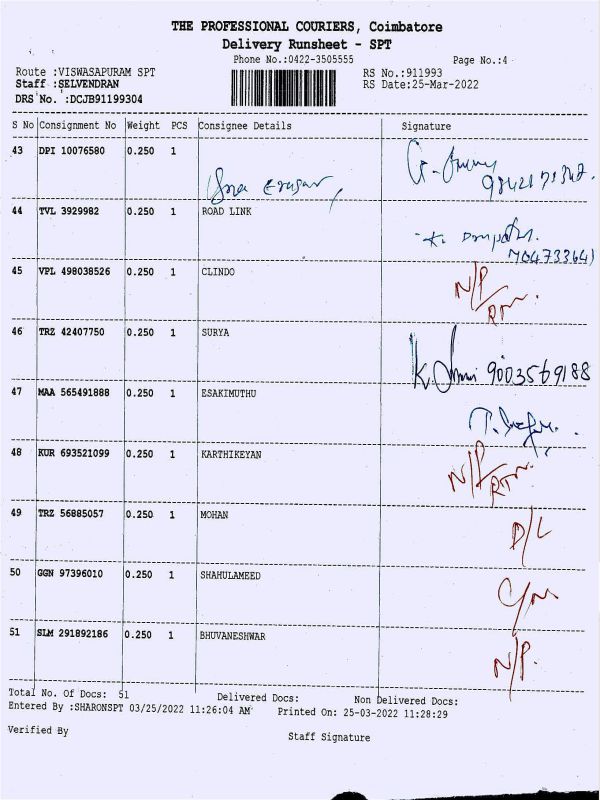 THE PROFESSIONAL COURIERS, Coimbatore
Delivery Runsheet - SPT
Phone No.:0422-3505555
Page No.:4
Route :VISWASAPURAM SPT
RS No.:911993
Staff :SELVENDRAN
RS Date:25-Mar-2022
DRS No. :DCJB91199304
S No Consignment No Weight PCS Consignee Details Signature
43 DPI 10076580 0.250 1
44 TVL 3929982 0.250 1 ROAD LINK
45 VPL 498038526 0.250 1 CLINDO
N/P
RTN.
46 TRZ 42407750 0.250 1 SURYA
9003569188
47 MAA 565491888 0.250 1 ESAKIMUTHU
48 KUR 693521099 0.250 1 KARTHIKEYAN
N/P
RTN.
49 TRZ 56885057 0.250 1 MOHAN
D/L
50 GGN 97396010 0.250 1 SHAHULAMEED
51 SLM 291892186 0.250 1 BHUVANESHWAR
N/P.
Total No. Of Docs: 51 Delivered Docs: Non Delivered Docs:
Entered By :SHARONSPT 03/25/2022 11:26:04 AM Printed On: 25-03-2022 11:28:29
Verified By Staff Signature